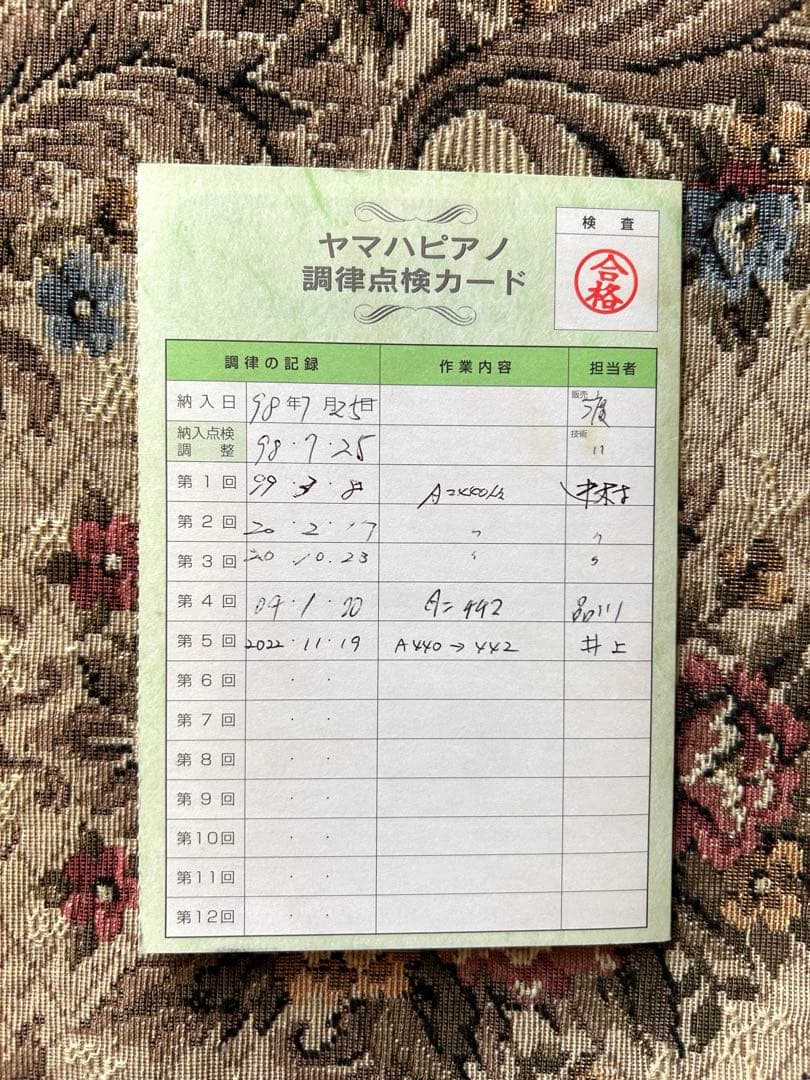 検 査
合格
ヤマハピアノ
調律点検カード
調律の記録 作業内容 担当者
納入日 98年7月25日 販売
納入点検調整 98・7・25 技術 〃
第1回 99・3・8 A=440Hz
第2回 20・2・17 〃 〃
第3回 20・10.23 〃 〃
第4回 04・1・20 A=442 品川
第5回 2022・11・19 A440→442 井上
第6回 ・ ・
第7回 ・ ・
第8回 ・ ・
第9回 ・ ・
第10回 ・ ・
第11回 ・ ・
第12回 ・ ・